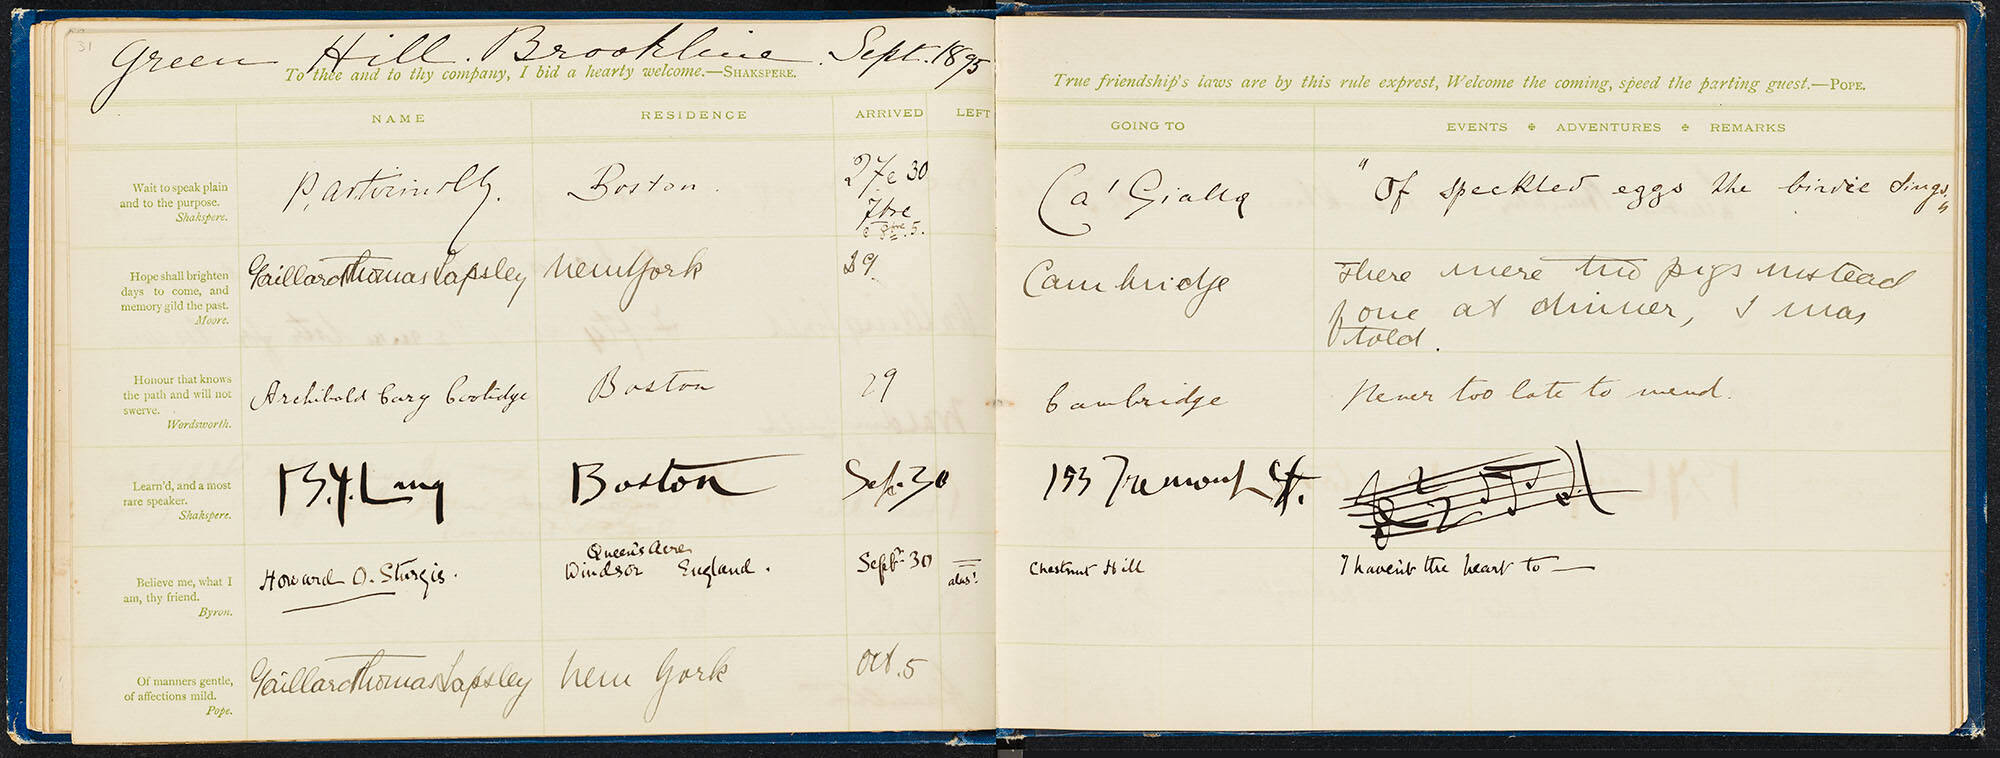 31
Green Hill. Brookline. Sept. 1895
To thee and to thy company, I bid a hearty welcome.—SHAKSPERE.
NAME RESIDENCE ARRIVED LEFT
Wait to speak plain
and to the purpose.
Shakspere.
Boston.
27 e 30
7bre
e 8bre. 5.
Hope shall brighten
days to come, and
memory gild the past.
Moore.
Gaillard Thomas Lapsley New York 29
Honour that knows
the path and will not
swerve.
Wordsworth.
Archibald Cary Coolidge Boston 29
Learn'd, and a most
rare speaker.
Shakspere.
B.J. Lang Boston Sep. 30
Believe me, what I
am, thy friend.
Byron.
Howard O. Sturgis. Queen's Acre
Windsor England. Sept. 30 — alas!
Of manners gentle,
of affections mild.
Pope.
Gaillard Thomas Lapsley New York Oct. 5
True friendship's laws are by this rule exprest, Welcome the coming, speed the parting guest.—POPE.
GOING TO EVENTS ✠ ADVENTURES ✠ REMARKS
Ca' Gialla "Of speckled eggs the birdie sings,"
Cambridge There were two pigs instead
of one at dinner, I was
told.
Cambridge Never too late to mend.
153 Tremont St.
Chestnut Hill I haven't the heart to —